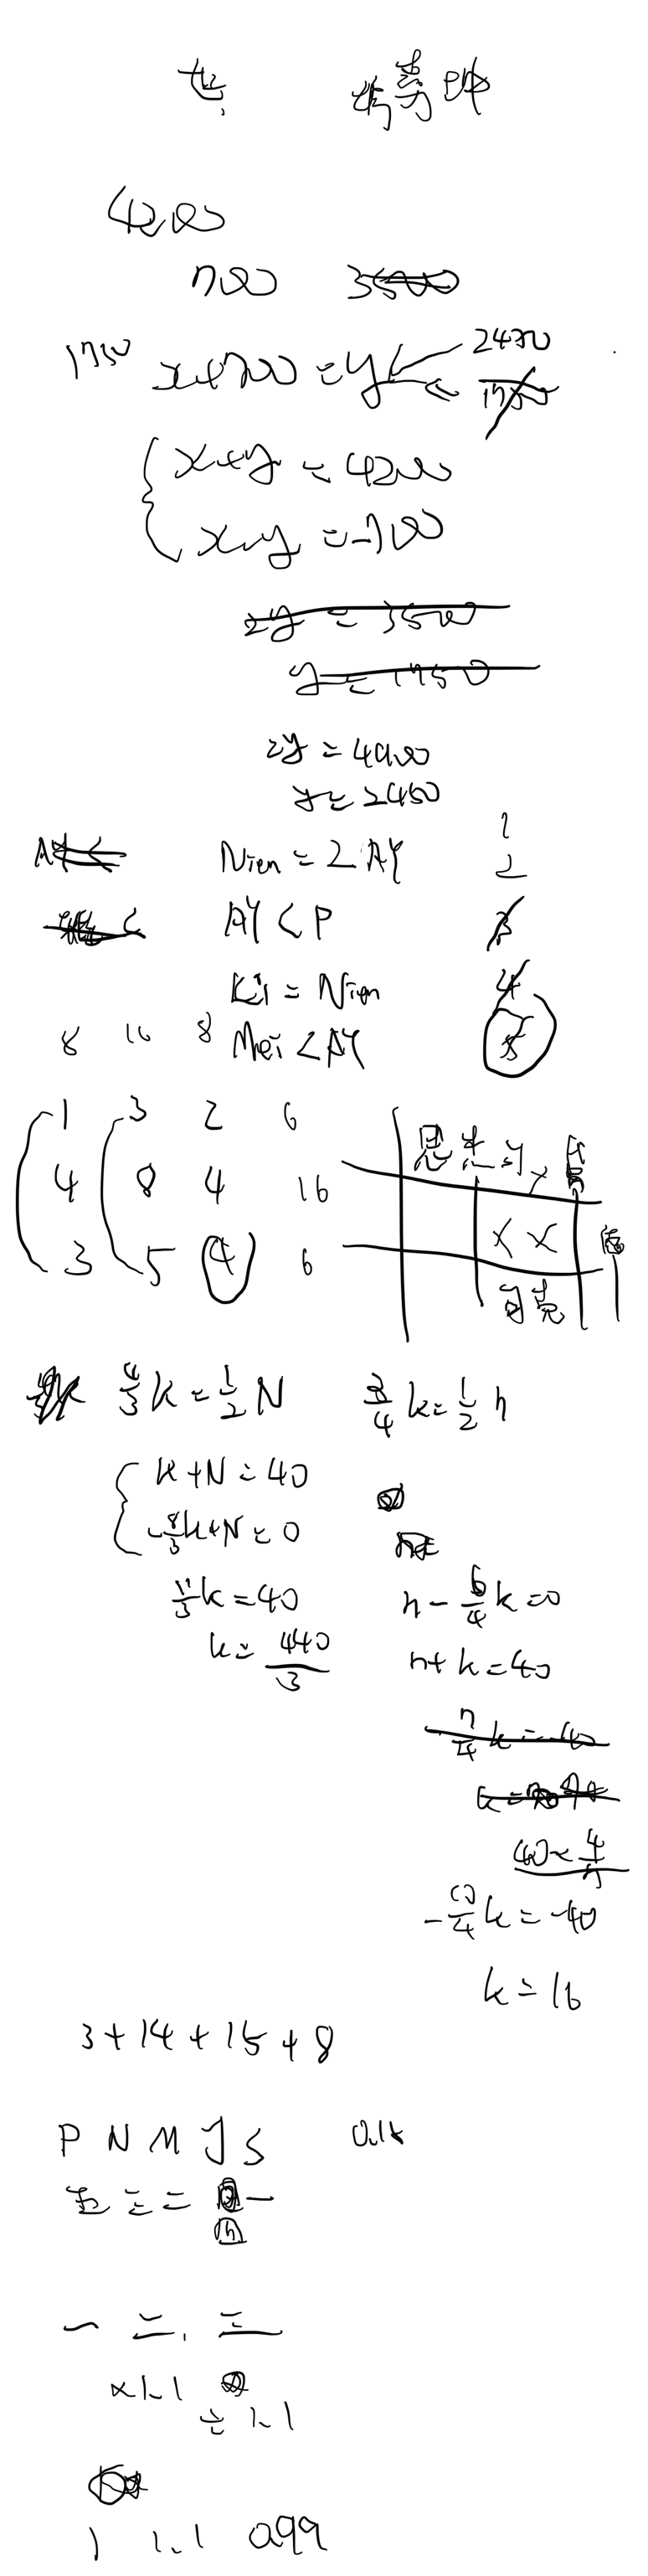 4200
700 3500
1750 x+700=y 2450
1750
x+y=4200
x-y=-700
2y=3500
y=1750
2y=4900
y=2450
Nien=2AY 1
2
AY<P 3
Ki=Nien 4
8 16 8 Mei<AY 5
1 3 2 6
4 8 4 16
3 5 4 6
思杰
XX
4/3 k=1/2 N 3/4 k=1/2 n
k+N=40
-8/3 k+N=0
11/3 k=40 n-6/4 k=0
k=440/3 n+k=40
k=
40×4/7
-10/4 k=-40
k=16
3+14+15+8
P N M J S
五 三 二 四 一
四
一 二. 三
×1.1
÷1.1
1 1.1 0.99